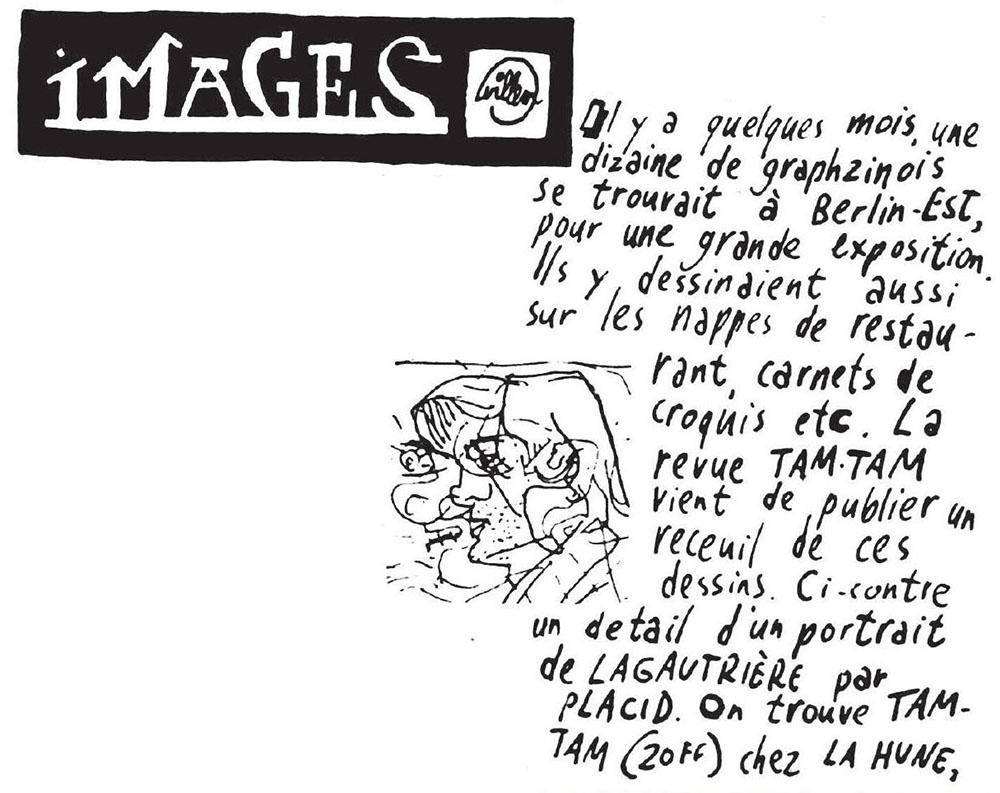 iMAGES
willem
Il y a quelques mois, une
dizaine de graphzinois
se trouvait à Berlin-EST,
pour une grande exposition.
Ils y dessinaient aussi
sur les nappes de restau-
rant, carnets de
croquis etc. La
revue TAM·TAM
vient de publier un
receuil de ces
dessins. Ci-contre
un detail d'un portrait
de LAGAUTRIÈRE par
PLACID. On trouve TAM-
TAM (20FF) chez LA HUNE,